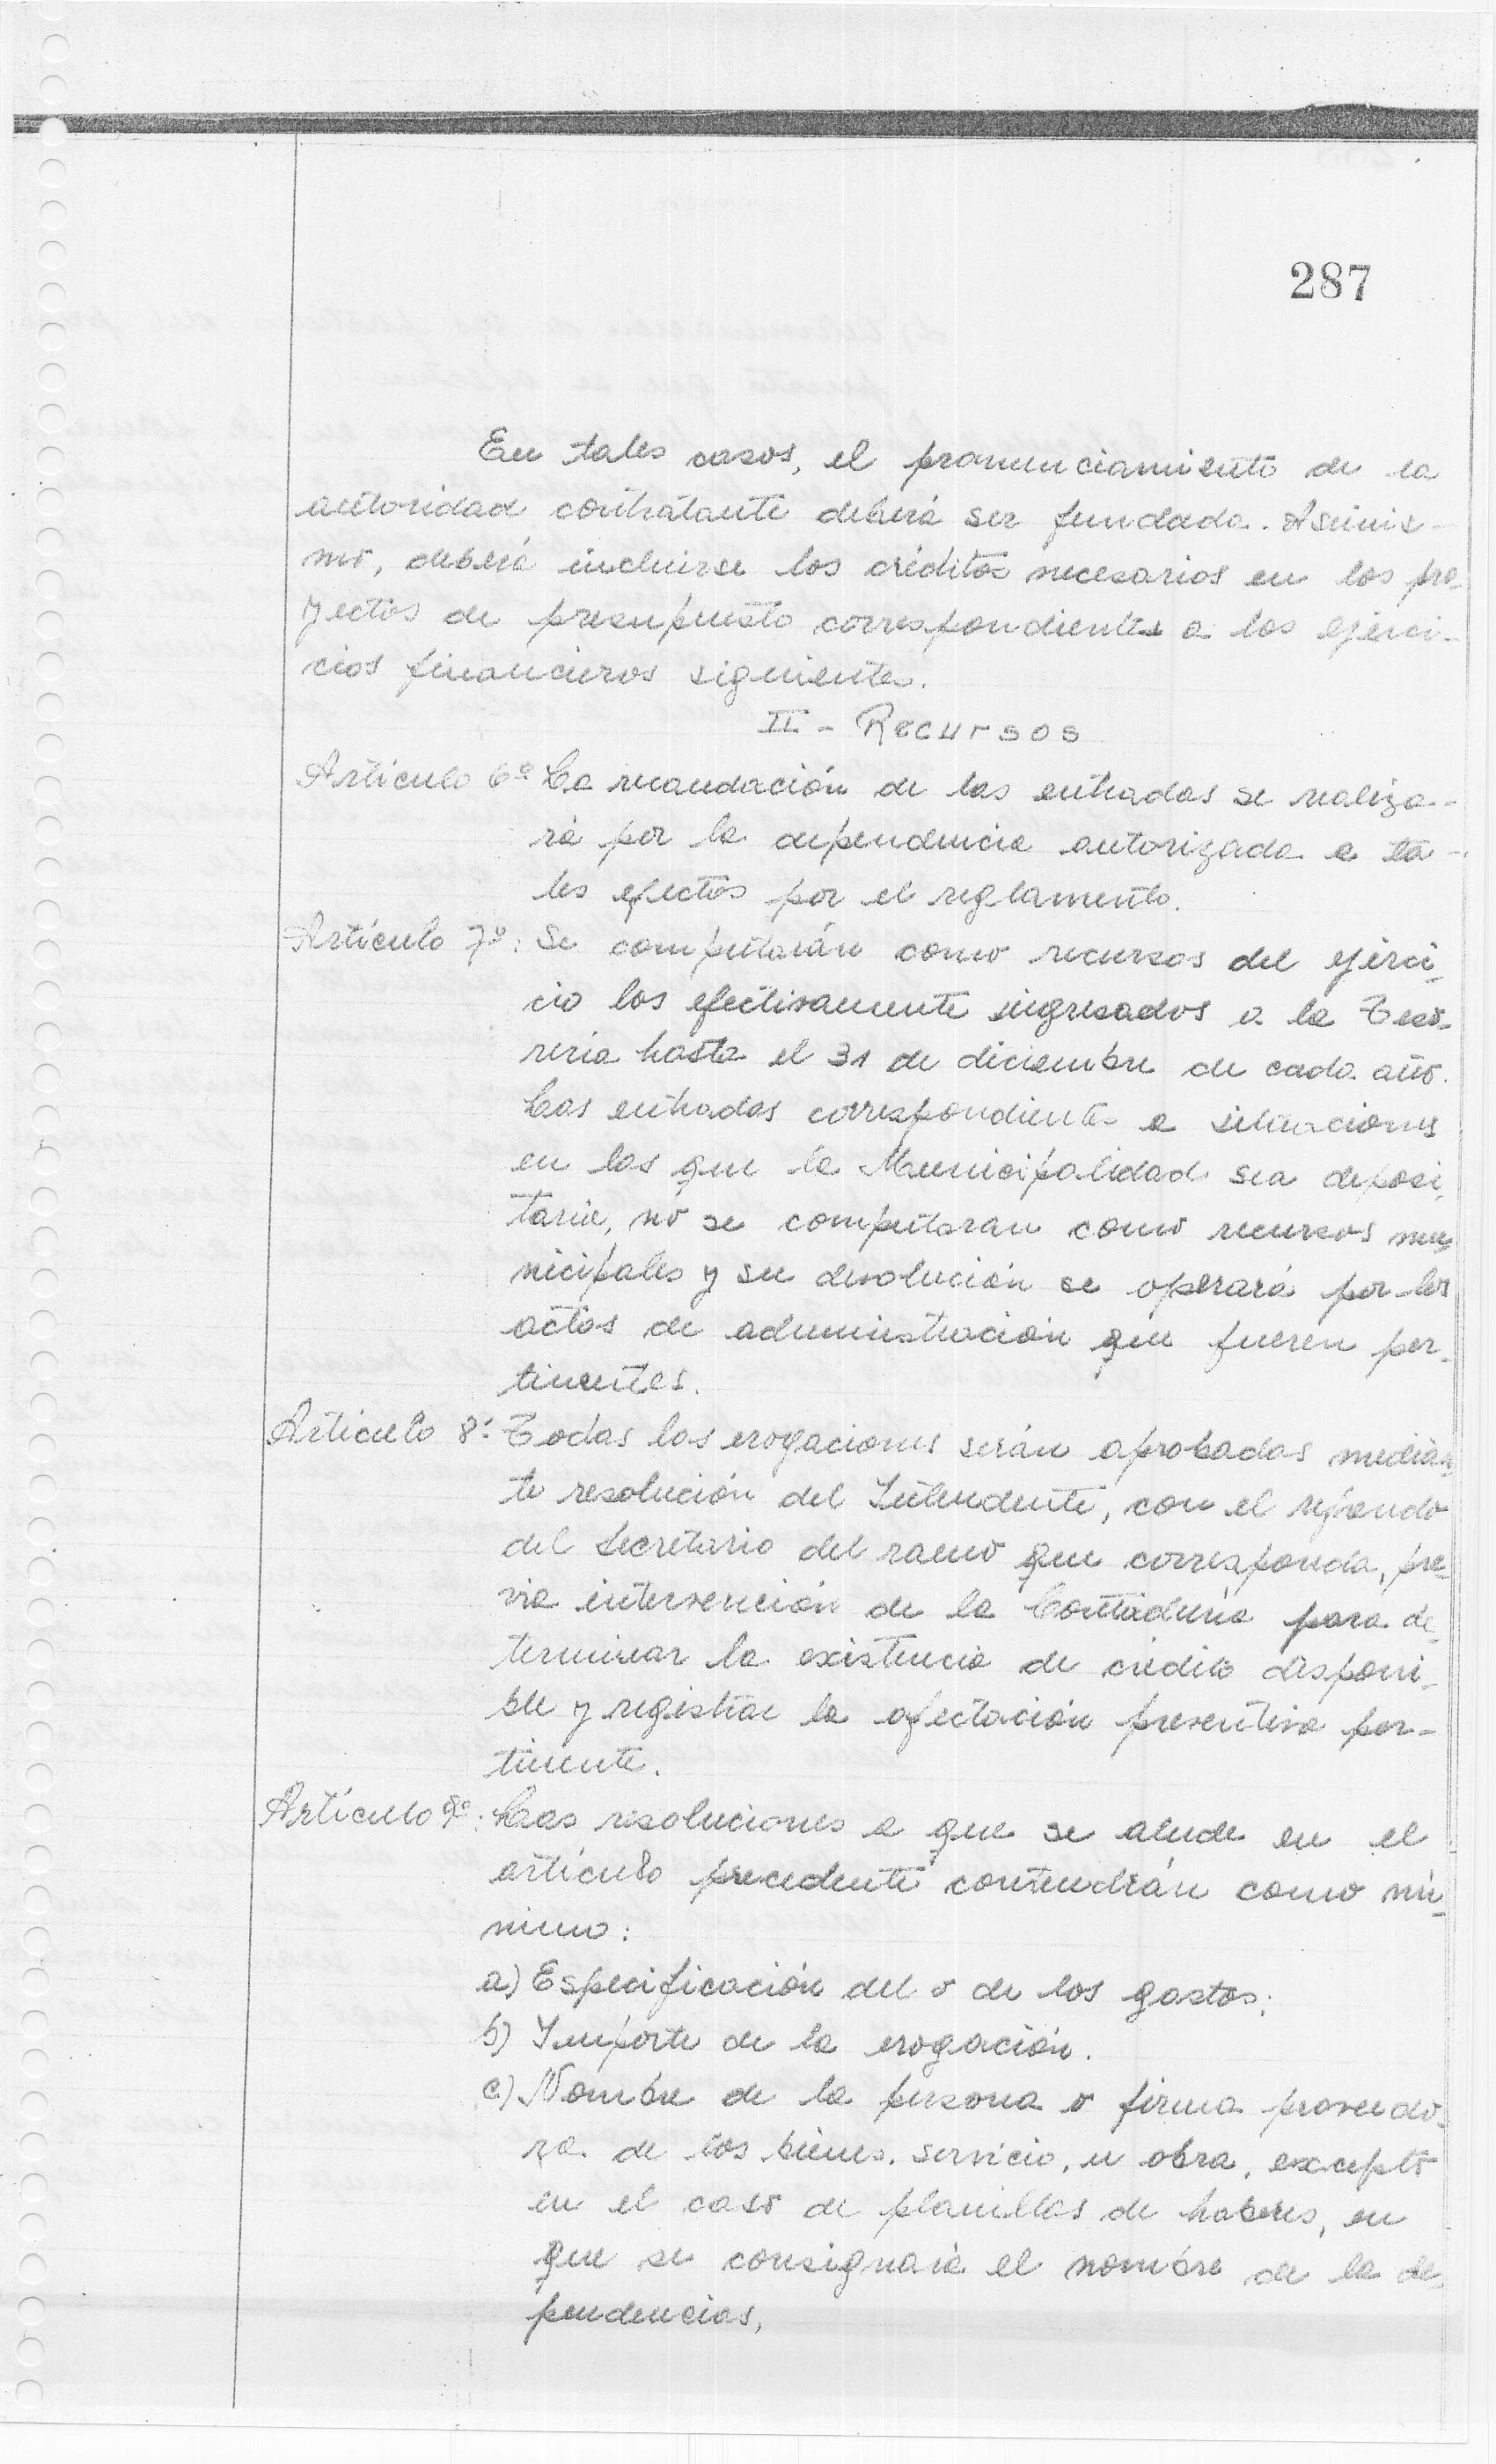 287
En tales casos, el pronunciamiento de la
autoridad contratante deberá ser fundada. Asimis-
mo, deberá incluirse los créditos necesarios en los pro-
yectos de presupuesto correspondientes a los ejerci-
cios financieros siguientes.
II - Recursos
Artículo 6º La recaudación de las entradas se realiza-
rá por la dependencia autorizada a ta-
les efectos por el reglamento.
Artículo 7º: Se computarán como recursos del ejerci-
cio los efectivamente ingresados a la Teso-
reria hasta el 31 de diciembre de cada año.
Las entradas correspondientes a situaciones
en las que la Municipalidad sea deposi-
taria, no se computaran como recursos mu-
nicipales y su devolución se operará por los
actos de administración que fueren per-
tinentes.
Artículo 8: Todas las erogaciones serán aprobadas median-
te resolución del Intendente, con el refrendo
del Secretario del ramo que corresponda, pre-
via intervención de la Contaduría para de-
terminar la existencia de crédito disponi-
ble y registrar la afectación preventiva per-
tinente.
Artículo 9º: Las resoluciones a que se alude en el
artículo precedente contendrán como mí-
nimo:
a) Especificación del o de los gastos;
b) Importe de la erogación.
c) Nombre de la persona o firma proveedo-
ra de los bienes, servicio, u obra, excepto
en el caso de planillas de haberes, en
que se consignará el nombre de la de-
pendencias,